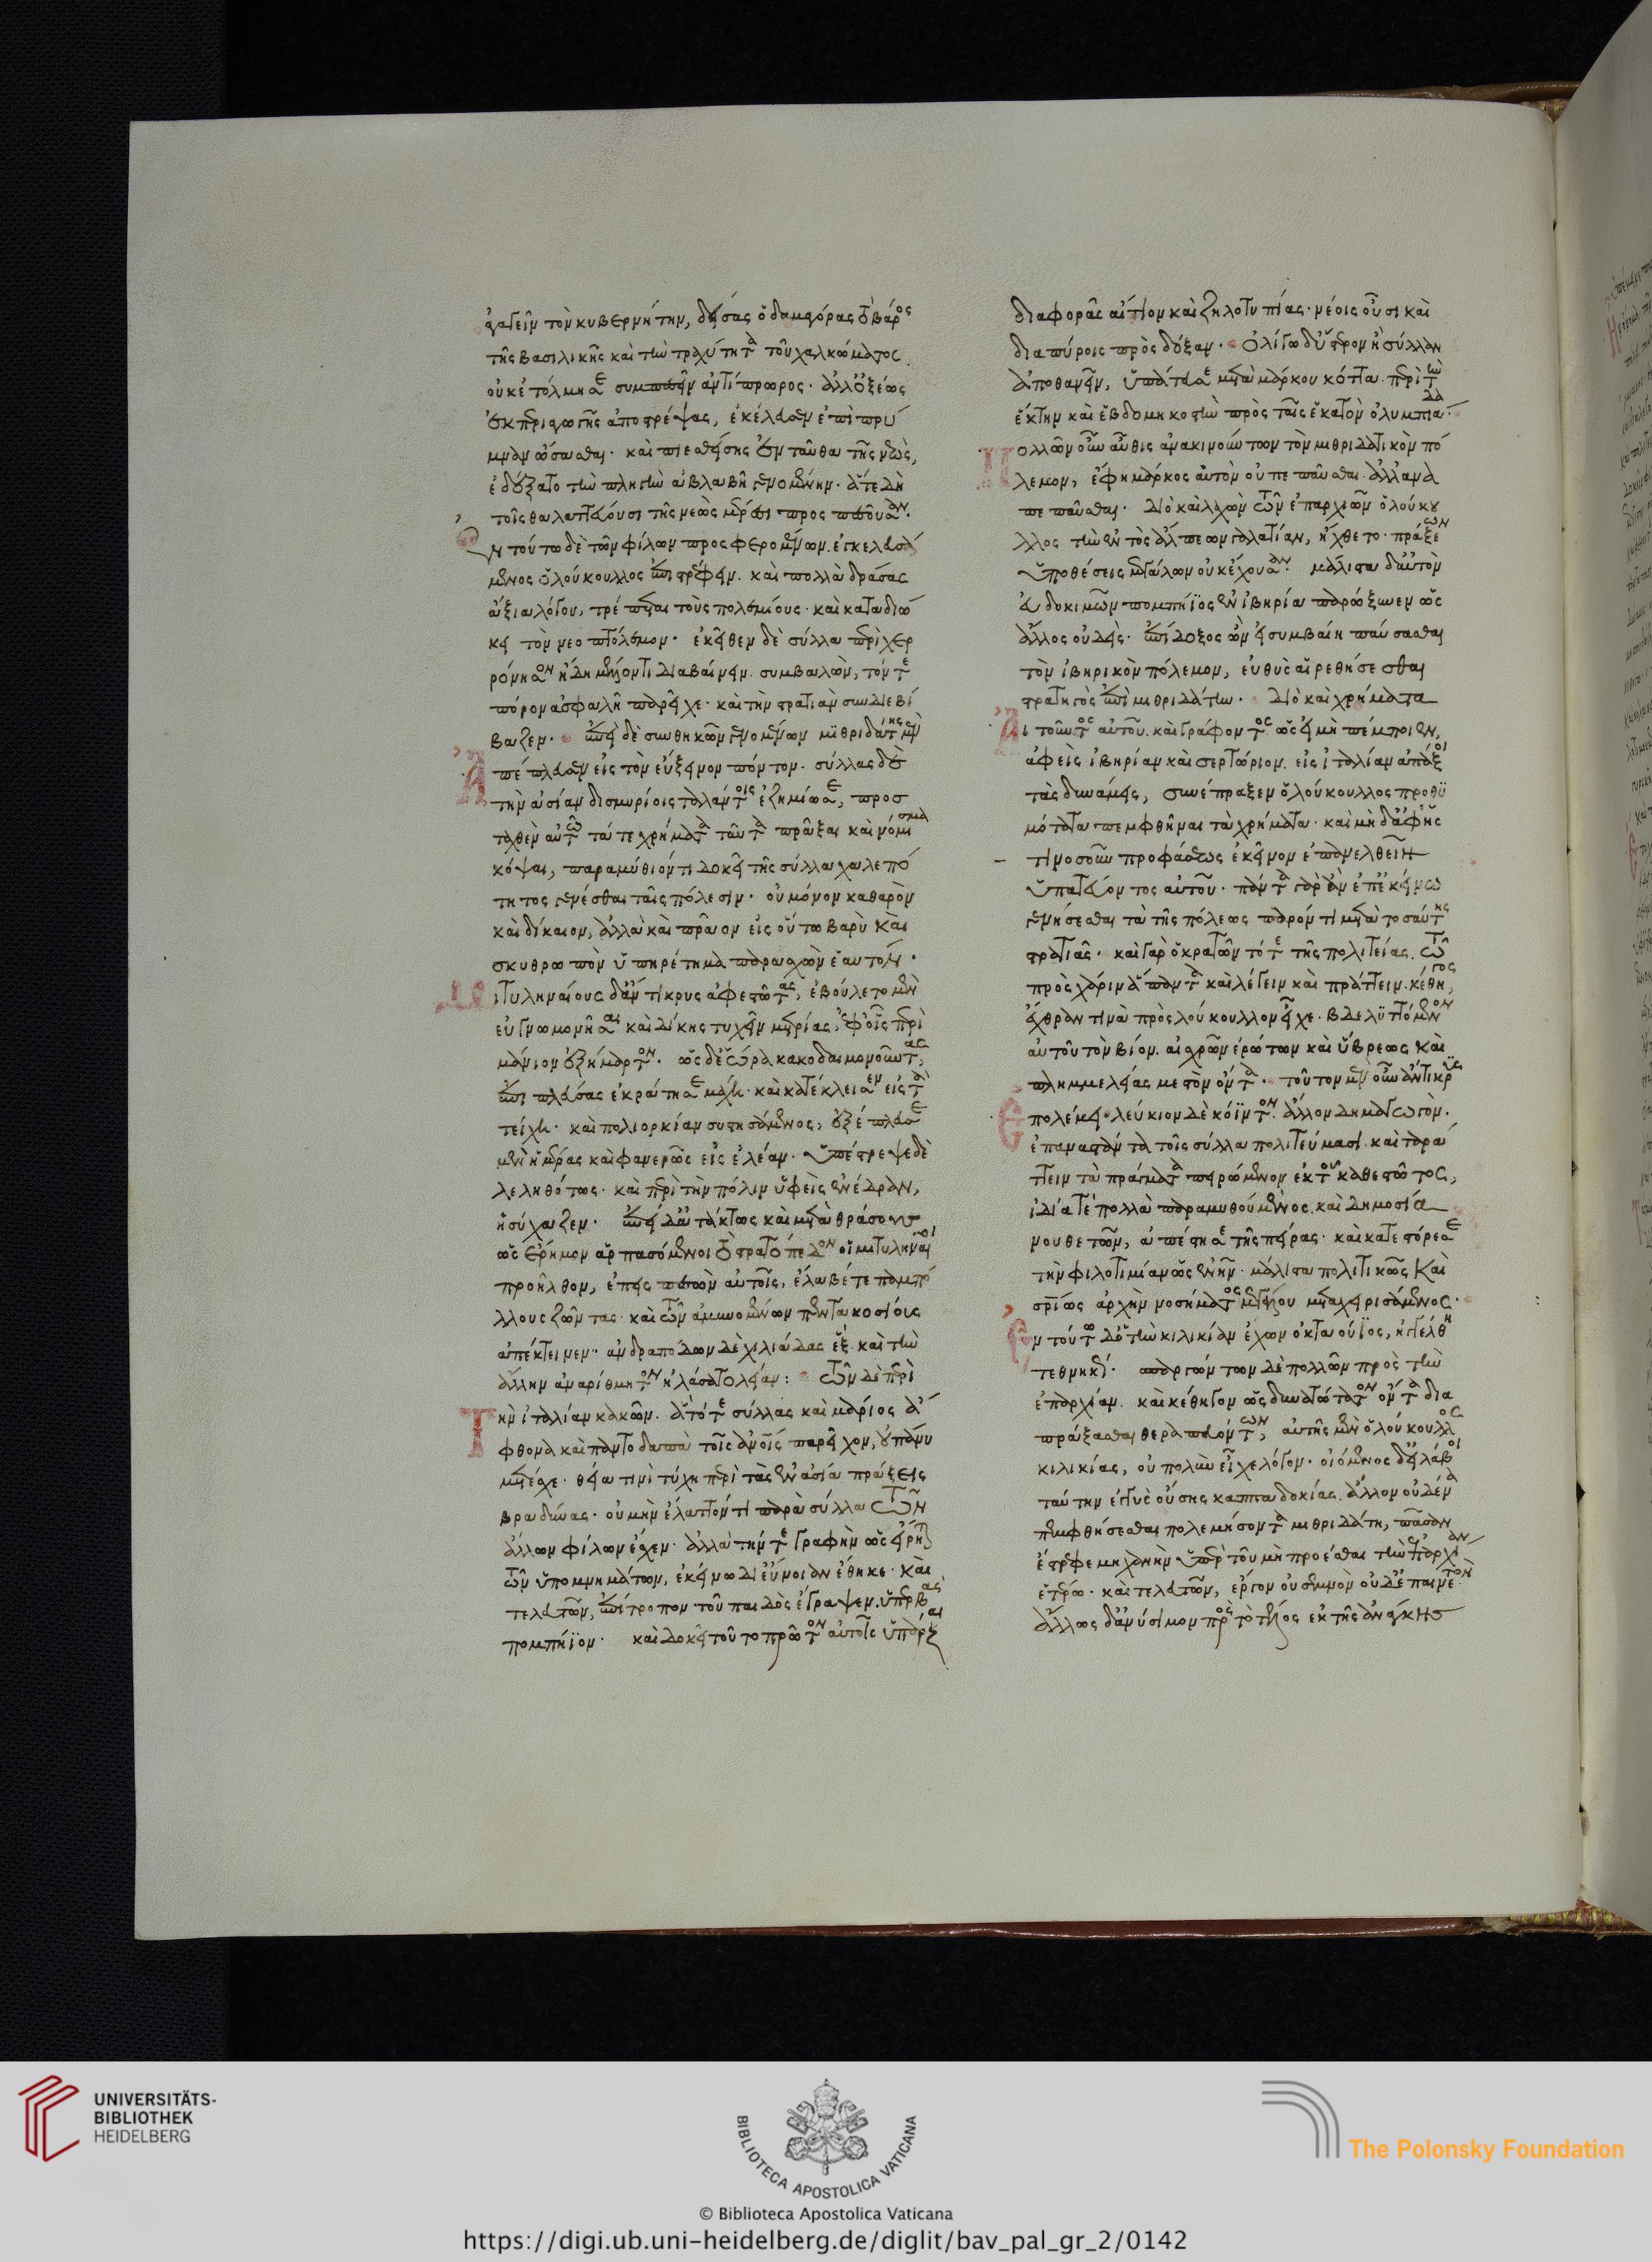 ἀγαγεῖν τὸν κυβερνήτην, δείσας ὁ δαμαγόρας τὸ βάρος
τῆς βασιλικῆς καὶ τὴν τραχύτητα τοῦ χαλκώματος
οὐκ ἐτόλμησε συμπεσεῖν ἀντίπρωρος· ἀλλ' ὀξέως
ἐκ περιαγωγῆς ἀποστρέψας, ἐκέλευσεν ἐπὶ πρύ
μναν ὤσασθαι· καὶ πιεσθείσης ἐνταῦθα τῆς νεὼς,
ἐδέξατο τὴν πληγὴν ἀβλαβῆ γενομένην· ἅτε δὴ
τοῖς θαλαττεύουσι τῆς νεὼς μέρεσι προσπεσοῦσαν·
Ἐν τούτω δὲ τῶν φίλων προσφερομένων. ἐγκελευσά
μενος ὁ λούκουλλος ἐπιστρέφειν. καὶ πολλὰ δράσας
ἄξια λόγου, τρέπεται τοὺς πολεμίους· καὶ καταδιώ
κει τὸν νεοπτόλεμον· ἐκεῖθεν δὲ σύλλα περὶ χερ
ρόνησον ἤδη μέλλοντι διαβαίνειν. συμβαλὼν, τόν τε
πόρον ἀσφαλῆ παρεῖχε· καὶ τὴν στρατιὰν συνδιεβί
βαζεν· ἐπεὶ δὲ συνθηκῶν γενομένων μιθριδάτης μὲν
Ἀπέπλευσεν εἰς τὸν εὔξεινον πόντον· σύλλας δὲ
τὴν ἀσίαν δισμυρίοις ταλάντοις ἐζημίωσε, προσ
ταχθὲν αὐτῶ τά τε χρήματα ταῦτα πρᾶξαι καὶ νόμισμα
κόψαι, παραμύθιόν τι δοκεῖ τῆς σύλλα χαλεπό
τητος γενέσθαι ταῖς πόλεσιν· οὐ μόνον καθαρὸν
καὶ δίκαιον, ἀλλὰ καὶ πρᾶον εἰς οὕτω βαρὺ καὶ
σκυθρωπὸν ὑπηρέτημα παρασχὼν ἑαυτόν·
Μιτυληναίους δ' ἄντικρυς ἀφεστῶτας, ἐβούλετο μὲν
εὐγνωμονῆσαι καὶ δίκης τυχεῖν μετρίας, ἐφ' οἷς περὶ
μάνιον ἐξήμαρτον· ὡς δ' ἑώρα κακοδαιμονοῦντας,
ἐπιπλεύσας ἐκράτησε μάχη· καὶ κατέκλεισεν εἰς τὰ
τείχη· καὶ πολιορκίαν συστησάμενος, ἐξέπλευσε
μεθ' ἡμέρας καὶ φανερῶς εἰς ἐλέαν· ὑπέστρεψε δὲ
λεληθότως· καὶ περὶ τὴν πόλιν ὑφεὶς ἐνέδραν,
ἡσύχαζεν· ἐπεὶ δ' ἀτάκτως καὶ μετὰ θράσους
ὡς ἔρημον ἁρπασόμενοι τὸ στρατόπεδον οἱ μιτυληναῖοι
προῆλθον, ἐπεισπεσὼν αὐτοῖς, ἔλαβέ τε παμπό
λλους ζῶντας· καὶ τῶν ἀμυνομένων πεντακοσίους
ἀπέκτεινεν· ἀνδραπόδων δὲ χιλιάδας ἓξ· καὶ τὴν
ἄλλην ἀναρίθμητον ἠλάσατο λείαν: τῶν δὲ περὶ
Τὴν ἰταλίαν κακῶν. ἃ τότε σύλλας καὶ μάριος ἄ
φθονα καὶ παντοδαπὰ τοῖς ἀνθρώποις παρεῖχον, οὐ πάνυ
μετέσχε· θεία τινὶ τύχη περὶ τὰς ἐν ἀσία πράξεις
βραδύνας· οὐ μὴν ἔλαττόν τι παρὰ σύλλα τῶν
ἄλλων φίλων ἔσχεν· ἀλλὰ τήν τε γραφὴν ὡς εἴρηται
τῶν ὑπομνημάτων, ἐκείνω δι' εὔνοιαν ἔθηκε· καὶ
τελευτῶν, ἐπίτροπον τοῦ παιδὸς ἔγραψεν. ὑπερβὰς
πομπήϊον· καὶ δοκεῖ τοῦτο πρῶτον αὐτοῖς ὑπάρξαι
διαφορᾶς αἴτιον καὶ ζηλοτυπίας· νέοις οὖσι καὶ
διαπύροις πρὸς δόξαν· Ὀλίγω δ' ὕστερον ἢ σύλλαν
ἀποθανεῖν, ὑπάτευσε μετὰ μάρκου κόττα. περὶ τὴν
ἕκτην καὶ ἑβδομηκοστὴν πρὸς ταῖς ἑκατὸν ὀλυμπιάδα·
Πολλῶν οὖν αὖθις ἀνακινούντων τὸν μιθριδατικὸν πό
λεμον, ἔφη μάρκος αὐτὸν οὐ πεπαῦσθαι ἀλλ' ἀνα
πεπαῦσθαι· διὸ καὶ λαχὼν τῶν ἐπαρχιῶν ὁ λούκου
λλος τὴν ἐντὸς ἄλπεων γαλατίαν, ἤχθετο· πράξεων
ὑποθέσεις μεγάλων οὐκ ἔχουσαν· μάλιστα δ' αὐτὸν
εὐδοκιμῶν πομπήϊος ἐν ἰβηρία παρώξυνεν ὡς
ἄλλος οὐδείς· ἐπίδοξος ὢν εἰ συμβαίη παύσασθαι
τὸν ἰβηρικὸν πόλεμον, εὐθὺς αἱρεθήσεσθαι
στρατηγὸς ἐπὶ μιθριδάτην· διὸ καὶ χρήματα
Αἰτοῦντος αὐτοῦ. καὶ γράφοντος ὡς εἰ μὴ πέμποιεν,
ἀφεὶς ἰβηρίαν καὶ σερτώριον. εἰς ἰταλίαν ἀπάξοι
τὰς δυνάμεις, συνέπραξεν ὁ λούκουλλος προθυ
μότατα πεμφθῆναι τὰ χρήματα· καὶ μὴ δ' ἀφ' ἧς
τινοσοῦν προφάσεως ἐκεῖνον ἐπανελθεῖν
ὑπατεύοντος αὐτοῦ· πάντα γὰρ ἂν ἐπ' ἐκείνω
γενήσεσθαι τὰ τῆς πόλεως παρόντι μετὰ τοσαύτης
στρατιᾶς· καὶ γὰρ ὁ κρατῶν τότε τῆς πολιτείας. τῶ
πρὸς χάριν ἅπαντα καὶ λέγειν καὶ πράττειν. κέθηγος,
ἔχθραν τινὰ πρὸς λούκουλλον εἶχε· βδελυττόμενον
αὐτοῦ τὸν βίον. αἰσχρῶν ἐρώτων καὶ ὕβρεως καὶ
πλημμελείας μεστὸν ὄντα· τοῦτον μὲν οὖν ἄντικρυς
Ἐπολέμει· λεύκιον δὲ κόϊντον. ἄλλον δημαγωγὸν.
ἐπαναστάντα τοῖς σύλλα πολιτεύμασι. καὶ ταρά
ττειν τὰ πράγματα πειρώμενον ἐκ τοῦ καθεστῶτος,
ἰδία τὲ πολλὰ παραμυθούμενος. καὶ δημοσία
νουθετῶν, ἀπέστησε τῆς πείρας· καὶ κατεστόρεσε
τὴν φιλοτιμίαν ὡς ἐνῆν· μάλιστα πολιτικῶς καὶ
σωτηρίως ἀρχὴν νοσήματος μεγάλου μεταχειρισάμενος·
Ἐν τούτω δ' ὁ τὴν κιλικίαν ἔχων ὀκταούϊος, ἠγγέλθη
τεθνηκώς· ὀργώντων δὲ πολλῶν πρὸς τὴν
ἐπαρχίαν. καὶ κέθηγον ὡς δυνατώτατον ὄντα δια
πράξασθαι θεραπευόντων, αὐτῆς μὲν ὁ λούκουλλος
κιλικίας, οὐ πολὺν εἶχε λόγον· οἰόμενος δ' εἰ λάβοι
ταύτην ἐγγὺς οὔσης καππαδοκίας. ἄλλον οὐδένα
πεμφθήσεσθαι πολεμήσοντα μιθριδάτη, πᾶσαν
ἔστρεφε μηχανὴν ὑπὲρ τοῦ μὴ προέσθαι τὴν ἐπαρχίαν
ἑτέρω· καὶ τελευτῶν, ἔργον οὐ σεμνὸν οὐδ' ἐπαινετὸν
ἄλλως δ' ἀνύσιμον πρὸς τὸ τέλος ἐκ τῆς ἀνάγκης
UNIVERSITÄTS-
BIBLIOTHEK
HEIDELBERG
BIBLIOTECA APOSTOLICA VATICANA
The Polonsky Foundation
© Biblioteca Apostolica Vaticana
https://digi.ub.uni-heidelberg.de/diglit/bav_pal_gr_2/0142